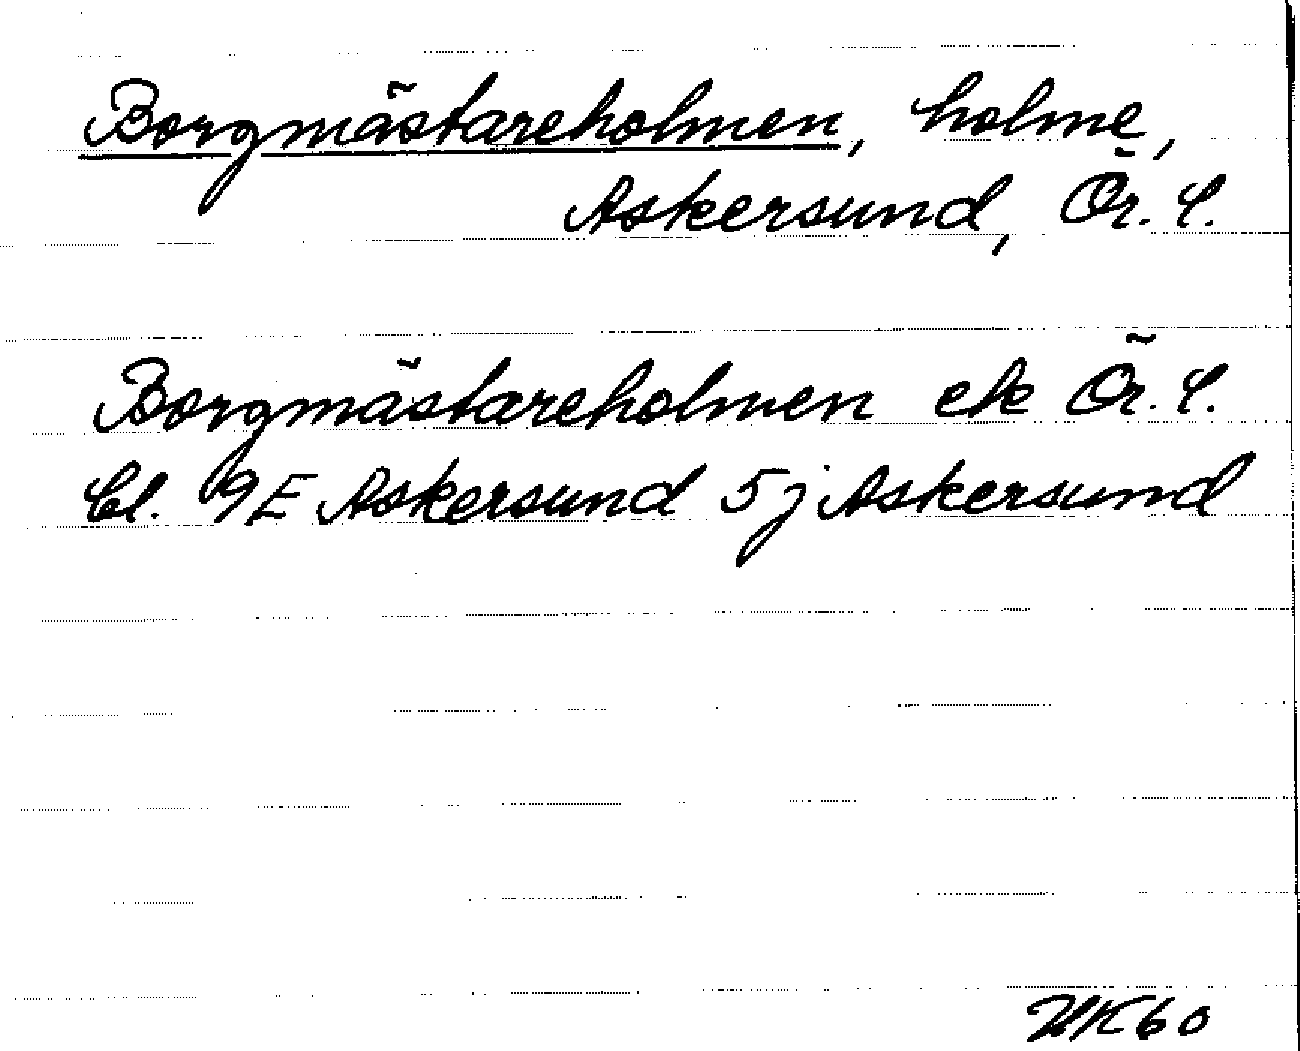 Borgmästareholmen, holme,
Askersund, Ör. l.
Borgmästareholmen ek Ör. l.
bl. 9E Askersund 5j Askersund
60